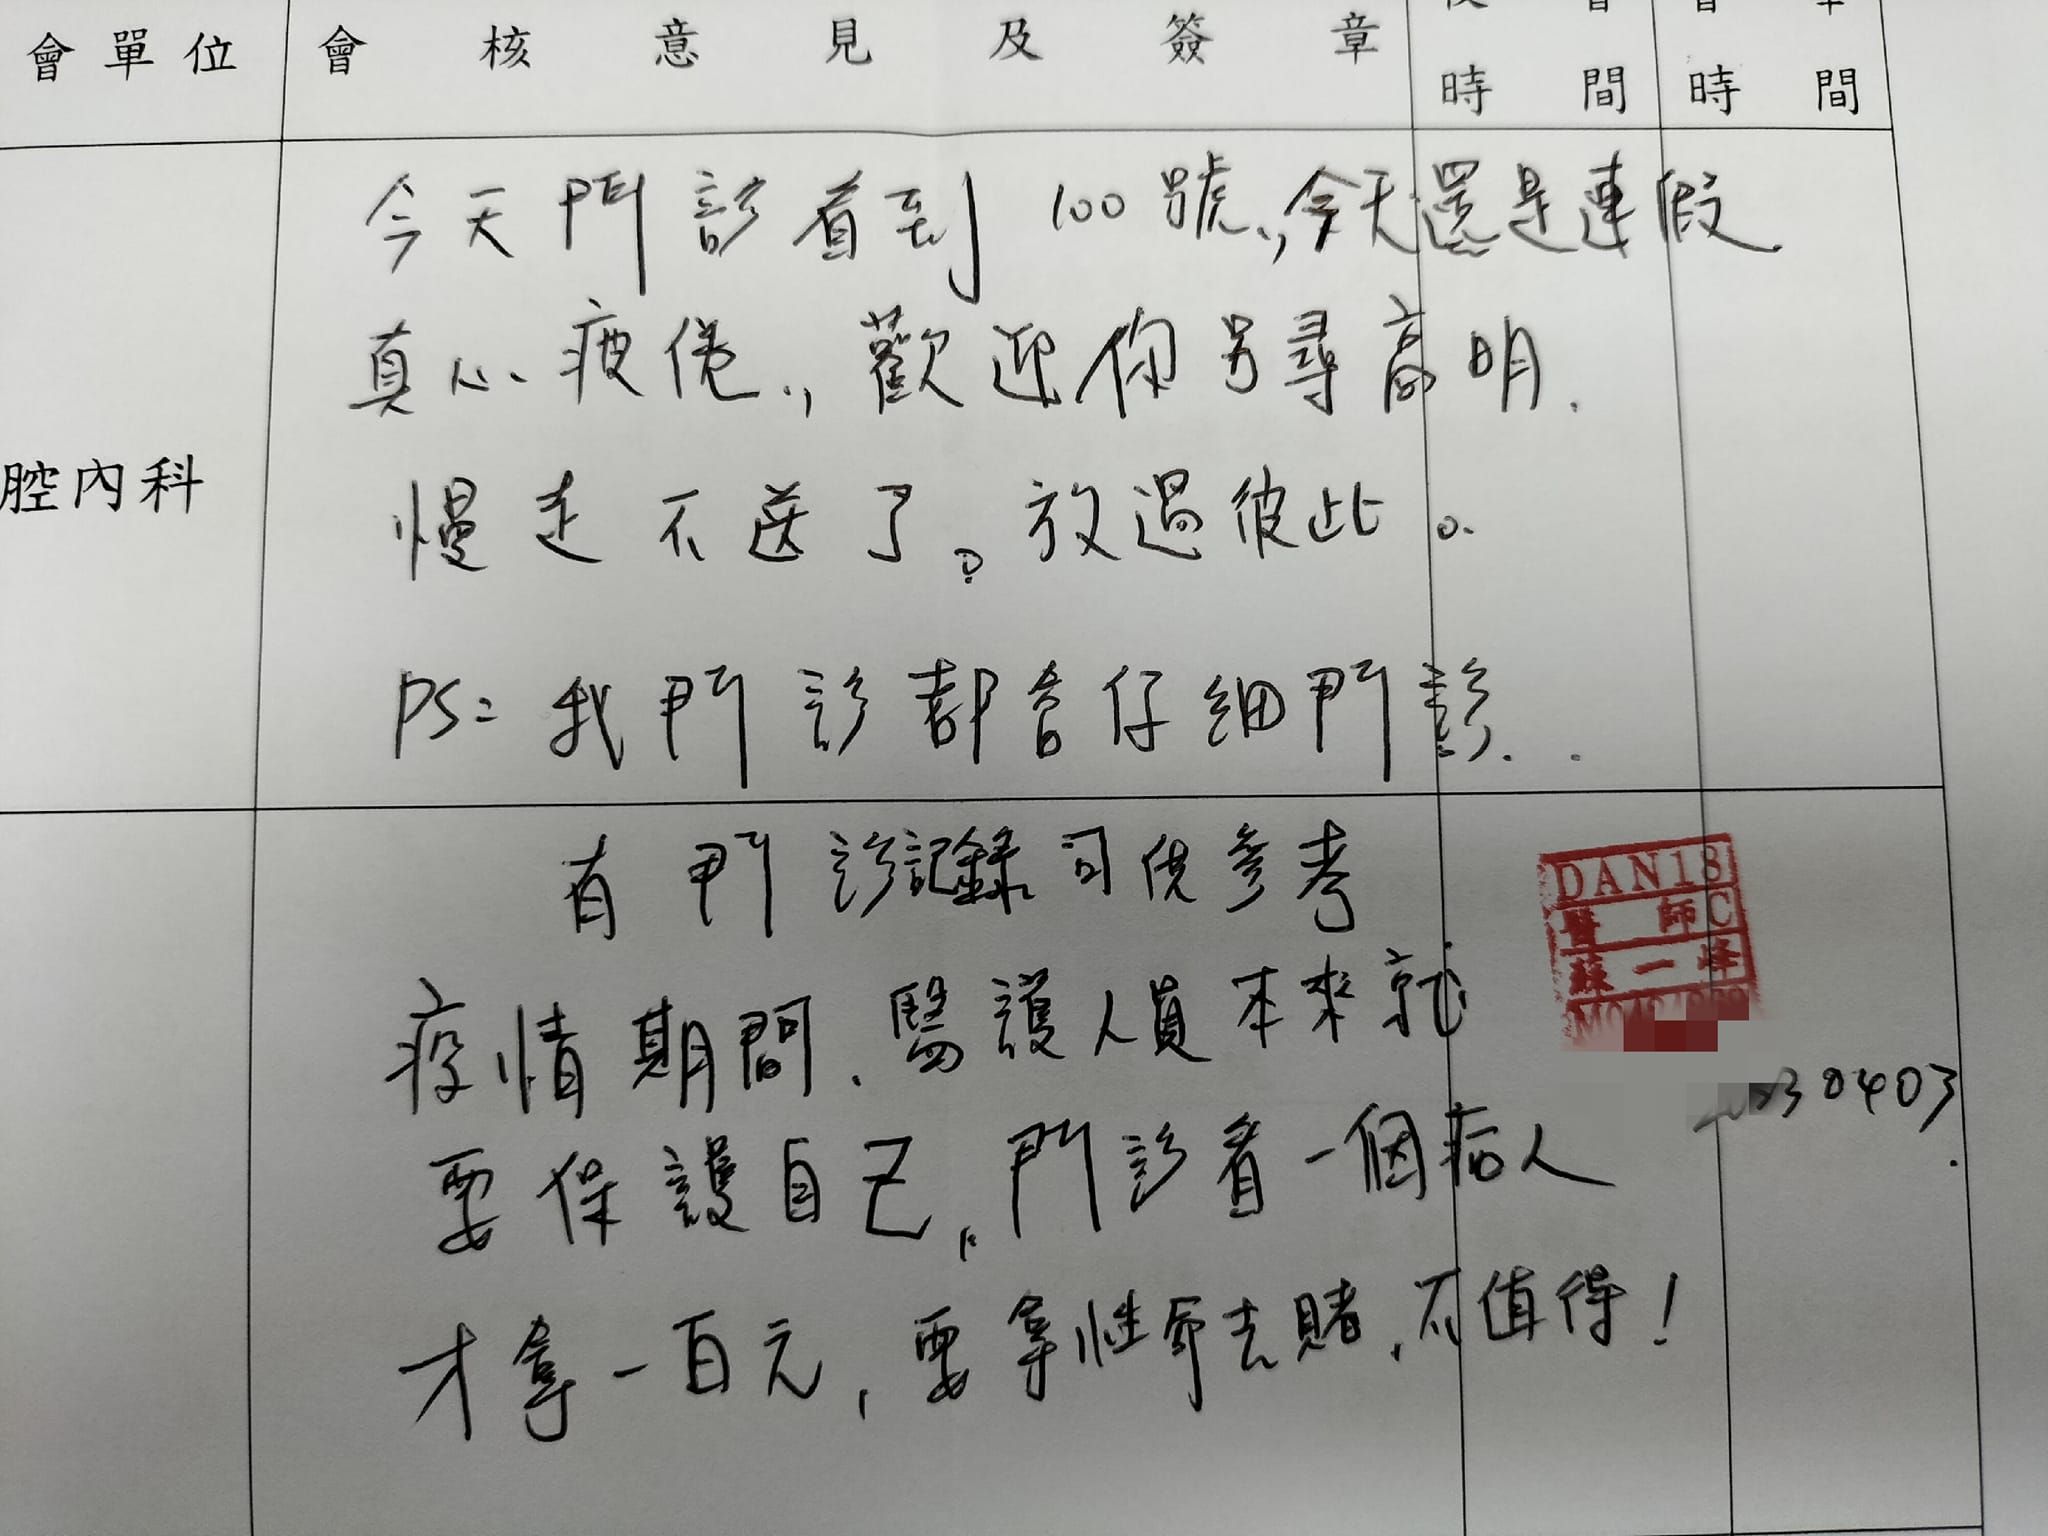 會單位
會核意見及簽章
時間
時間
腔內科
今天門診看到100號.,今天還是連假.
真心疲倦.,歡迎你另尋高明.
慢走不送了。放過彼此。
PS=我門診都會仔細門診..
有門診記錄可供參考
DAN18
醫師C
蘇一峰
疫情期間.醫護人員本來就
0403.
要保護自己.門診看一個病人
才拿一百元,要拿性命去賭.不值得!